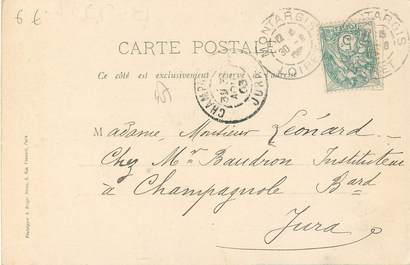 6 €
CARTE POSTALE
Ce côté est exclusivement réservé à l'adresse
MONTARGIS
LOIRET
CHAMPAGNOLE
JURA
03
5
Madame, Monsieur Léonard
Chez Mr Baudron Instituteur
à Champagnole Bard
Jura